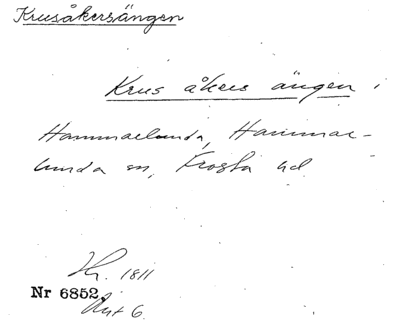 Krusåkersängen
Krus åkers ängen
Hammarlunda, Hammar-
lunda sn, Frosta hd
Nr 6852.
1811
6